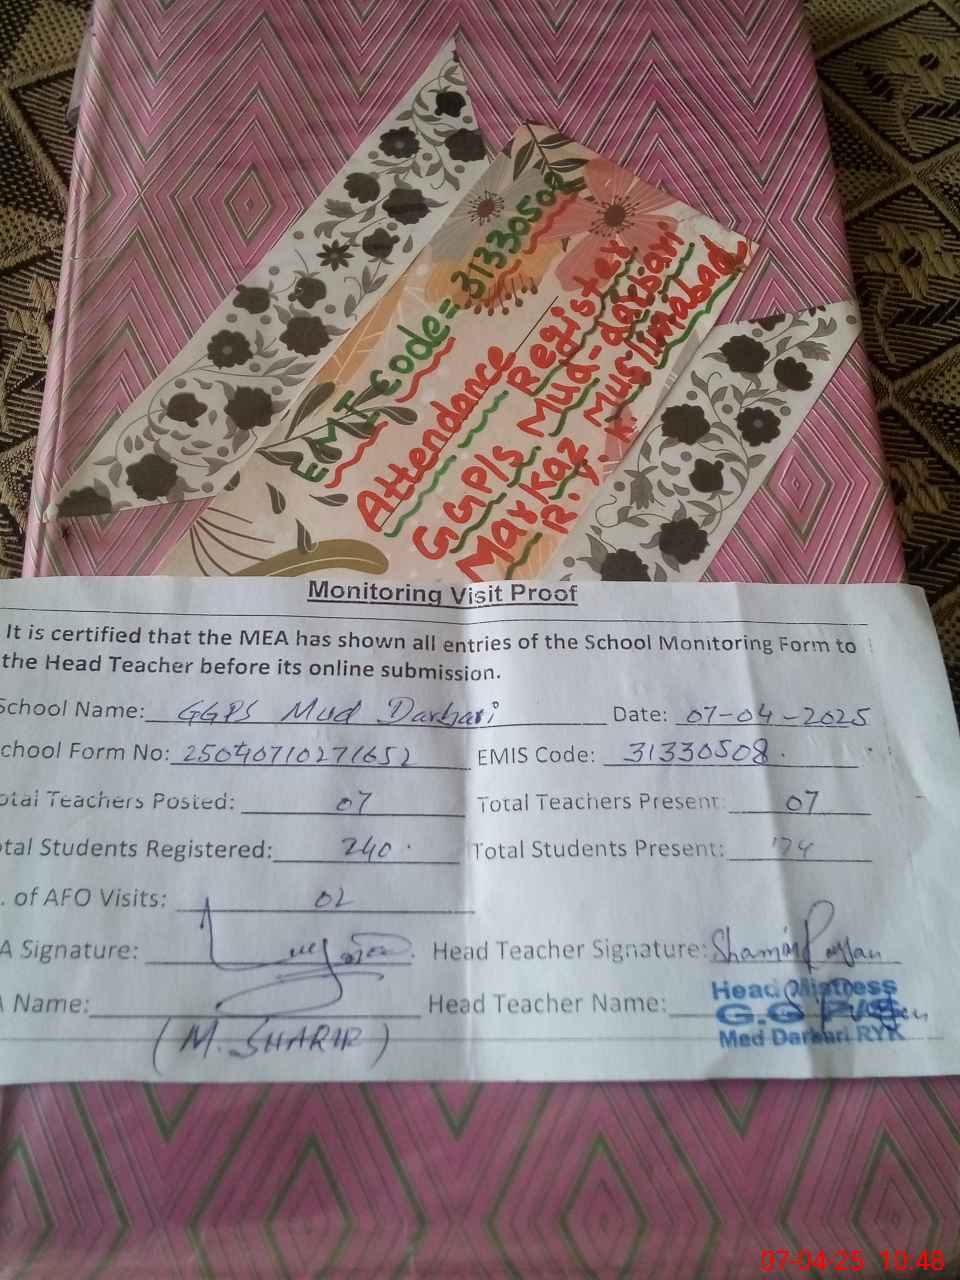 EMI Code = 31330508
Attendance Register
GGP/s Mud-darbari
Markaz Muslimabad
R.Y.K
Monitoring Visit Proof
It is certified that the MEA has shown all entries of the School Monitoring Form to
the Head Teacher before its online submission.
School Name: GGPS Mud Darbari Date: 07-04-2025
chool Form No: 25040710271652 EMIS Code: 31330508.
otal Teachers Posted: 07 Total Teachers Present: 07
tal Students Registered: 240. Total Students Present: 74
. of AFO Visits: 02
A Signature: Head Teacher Signature:
A Name: Head Teacher Name:
(M. SHARIF)
Head Mistress
G.G P/S
Med Darbari RYK
07-04-25 10:48